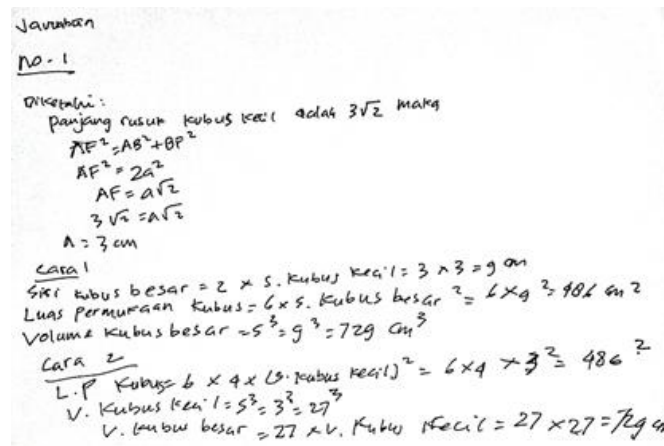 Jawaban
no. 1
Diketahui:
panjang rusuk kubus kecil adalah 3√2 maka
AF² = AB² + BF²
AF² = 2a²
AF = a√2
3√2 = a√2
a = 3 cm
Cara 1
Sisi kubus besar = 2 x s. kubus kecil = 3 x 3 = 9 cm
Luas permukaan kubus = 6 x s. kubus besar² = 6 x 9² = 486 cm²
Volume kubus besar = s³ = 9³ = 729 cm³
Cara 2
L.P kubus = 6 x 9 x (s. kubus kecil)² = 6 x 9 x 3² = 486²
V. kubus kecil = s³ = 3³ = 27³
V. kubus besar = 27 x V. kubus kecil = 27 x 27 = 729